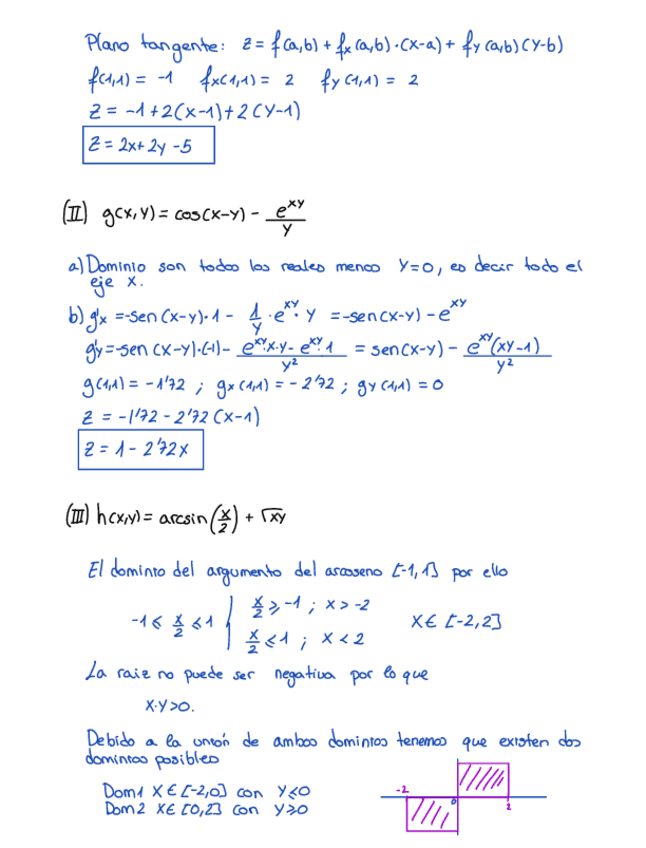 Plano tangente: z = f(a,b) + fx(a,b)·(x-a) + fy(a,b)(y-b)
f(1,1) = -1 fx(1,1) = 2 fy(1,1) = 2
z = -1+2(x-1)+2(y-1)
z = 2x+2y-5
(II) g(x,y) = cos(x-y) - e^xy/y
a) Dominio son todos los reales menos y=0, es decir todo el
eje x.
b) g'x = -sen(x-y)·1 - 1/y · e^xy · y = -sen(x-y) - e^xy
g'y = -sen(x-y)·(-1) - (e^xy·x·y - e^xy·1)/y² = sen(x-y) - e^xy(xy-1)/y²
g(1,1) = -1'72 ; gx(1,1) = -2'72 ; gy(1,1) = 0
z = -1'72 - 2'72(x-1)
z = 1 - 2'72x
(III) h(x,y) = arcsin(x/2) + √xy
El dominio del argumento del arcoseno [-1,1] por ello
-1 ≤ x/2 ≤ 1 { x/2 ≥ -1 ; x > -2
x/2 ≤ 1 ; x < 2 x ∈ [-2,2]
La raiz no puede ser negativa por lo que
x·y>0.
Debido a la unión de ambos dominios tenemos que existen dos
dominios posibles
Dom1 x ∈ [-2,0] con y≤0
Dom2 x ∈ [0,2] con y≥0
-2 0 2